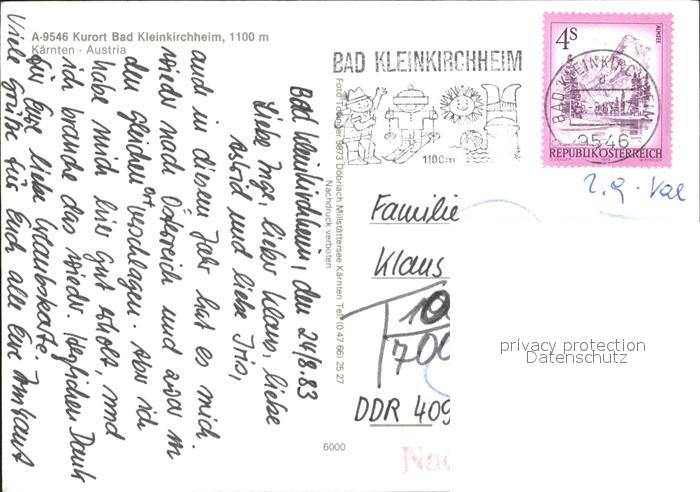 A-9546 Kurort Bad Kleinkirchheim, 1100 m
Kärnten · Austria
Bad Kleinkirchheim, den 24/8.83
Liebe Inge, lieber Klaus, liebe
Astrid und liebe Iris,
auch in diesem Jahr hat es mich
wieder nach Österreich und zwar in
den gleichen Ort verschlagen. Aber ich
habe mich hier gut erholt, und
ich brauche das wieder. Herzlichen Dank
für Eure liebe Urlaubskarte.
Viele Grüße für Euch alle Eure
9873 Döbriach Millstättersee Kärnten Tel. (0 47 66) 25 27
Nachdruck verboten
6000
BAD KLEINKIRCHHEIM
1100m
4S
ALMSEE
BAD KLEINKIRCHHEIM
9546
REPUBLIK ÖSTERREICH
Familie
Klaus
DDR 409
privacy protection
Datenschutz